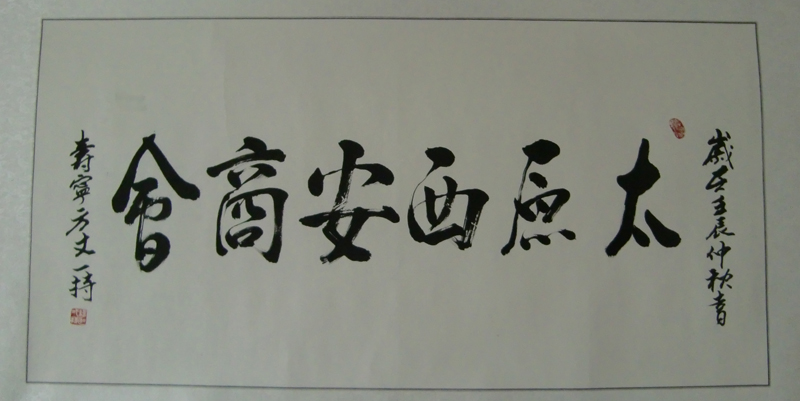 歲在壬辰仲秋書
太原西安商會
壽寧方丈一持